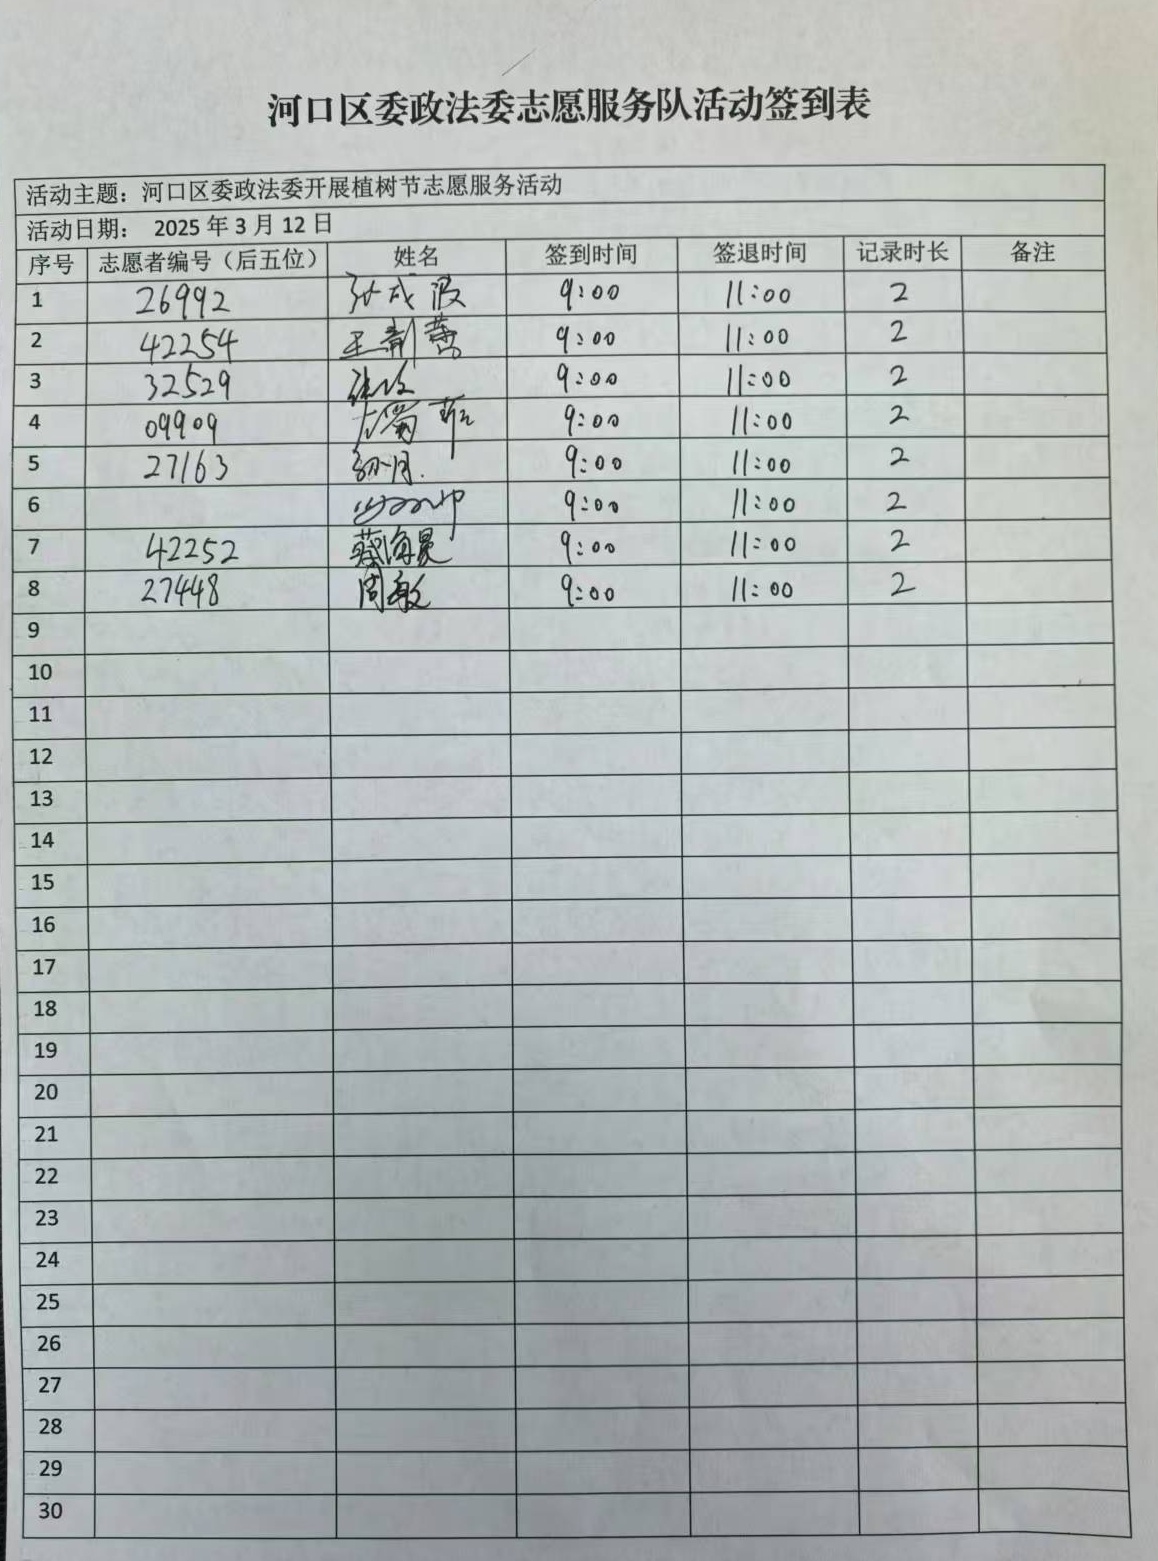 河口区委政法委志愿服务队活动签到表
活动主题：河口区委政法委开展植树节志愿服务活动
活动日期： 2025 年 3 月 12 日
序号 志愿者编号（后五位） 姓名 签到时间 签退时间 记录时长 备注
1 26992 孙成波 9:00 11:00 2
2 42254 王 9:00 11:00 2
3 32529 9:00 11:00 2
4 09909 9:00 11:00 2
5 27163 孙月 9:00 11:00 2
6 9:00 11:00 2
7 42252 蔡海晏 9:00 11:00 2
8 27448 周敏 9:00 11:00 2
9
10
11
12
13
14
15
16
17
18
19
20
21
22
23
24
25
26
27
28
29
30